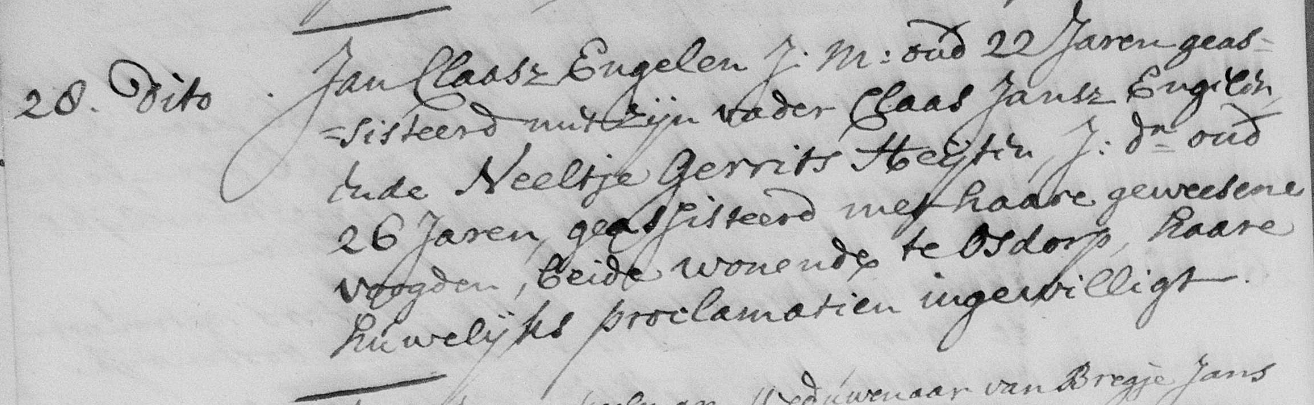 28. Dito. Jan Claasz Engelen J: M: oud 22 Jaren geas-
=sisteerd met zijn vader Claas Jansz Engelen,
ende Neeltje Gerrits Heijtin J: dr oud
26 Jaren, geassisteerd met haare geweesene
voogden, beide wonende te Osdorp, haare
huwelijks proclamatien ingewilligt.
Weduwenaar van Bregje Jans